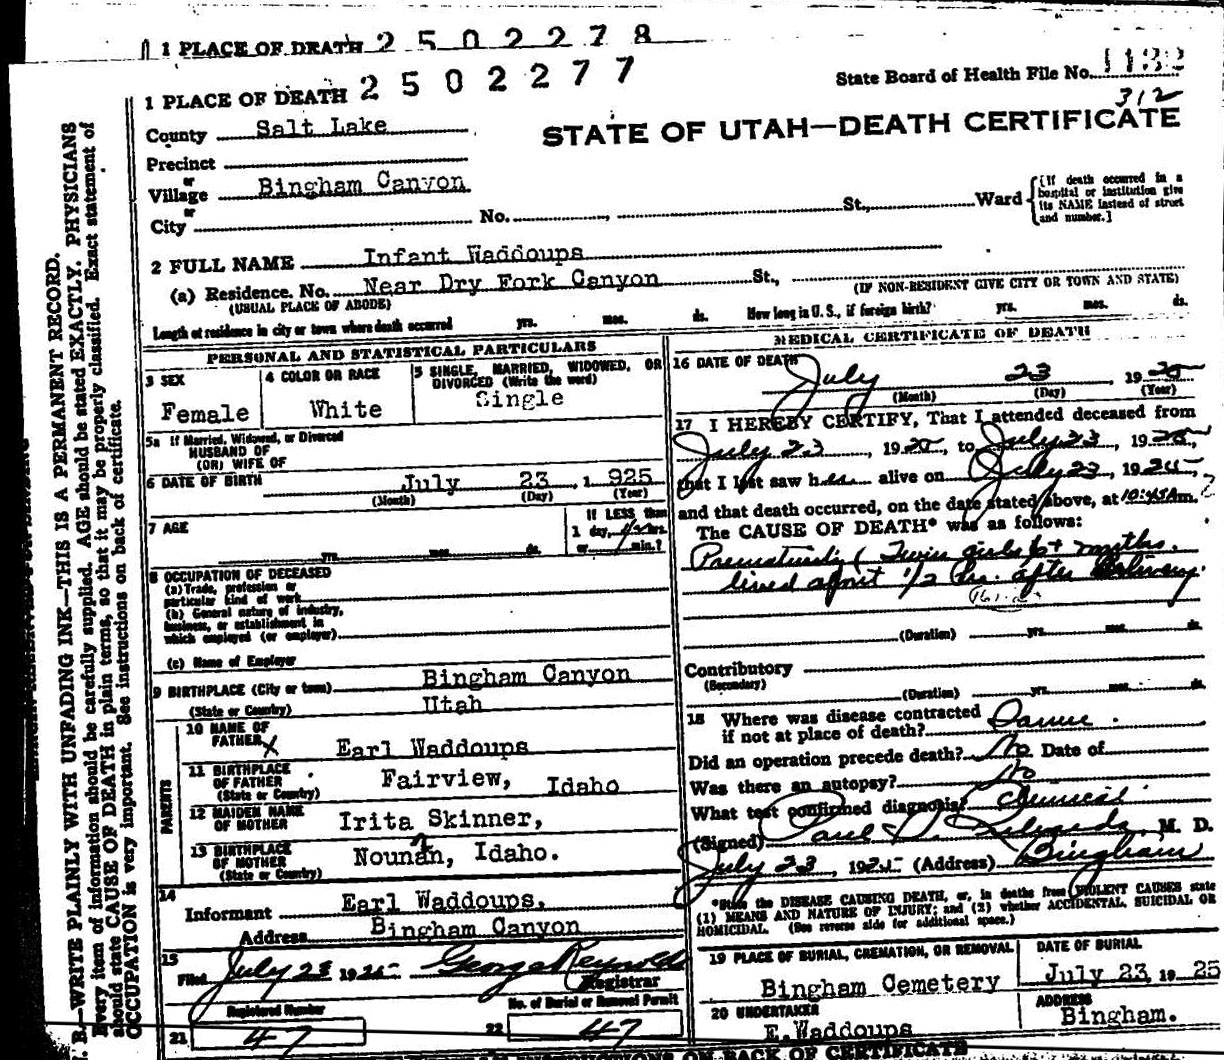 1 PLACE OF DEATH 2 5 0 2 2 7 8
1 PLACE OF DEATH 2 5 0 2 2 7 7
State Board of Health File No. 1132
312
STATE OF UTAH—DEATH CERTIFICATE
County Salt Lake
Precinct
or
Village Bingham Canyon
or
City No. , St., Ward
[If death occurred in a
hospital or institution give
its NAME instead of street
and number.]
2 FULL NAME Infant Waddoups
(a) Residence. No. Near Dry Fork Canyon St.,
(USUAL PLACE OF ABODE) (IF NON-RESIDENT GIVE CITY OR TOWN AND STATE)
Length of residence in city or town where death occurred yrs. mos. ds. How long in U. S., if foreign birth? yrs. mos. ds.
PERSONAL AND STATISTICAL PARTICULARS
3 SEX
Female
4 COLOR OR RACE
White
5 SINGLE, MARRIED, WIDOWED, OR
DIVORCED (Write the word)
Single
5a If Married, Widowed, or Divorced
HUSBAND OF
(OR) WIFE OF
6 DATE OF BIRTH July 23 , 1 925
(Month) (Day) (Year)
7 AGE
yrs. mos. ds.
If LESS than
1 day, 1/2 hrs.
or min.?
8 OCCUPATION OF DECEASED
(a) Trade, profession or
particular kind of work
(b) General nature of industry,
business, or establishment in
which employed (or employer)
(c) Name of Employer
9 BIRTHPLACE (City or town) Bingham Canyon
(State or Country) Utah
PARENTS
10 NAME OF
FATHER Earl Waddoups
11 BIRTHPLACE
OF FATHER Fairview, Idaho
(State or Country)
12 MAIDEN NAME
OF MOTHER Irita Skinner,
13 BIRTHPLACE
OF MOTHER Nounan, Idaho.
(State or Country)
14
Informant Earl Waddoups,
Address Bingham Canyon
15
Filed July 23 1925 George Reynolds
Registrar
Registered Number
No. of Burial or Removal Permit
21 47
22 47
MEDICAL CERTIFICATE OF DEATH
16 DATE OF DEATH
July 23 , 19 25
(Month) (Day) (Year)
17 I HEREBY CERTIFY, That I attended deceased from
July 23 , 1925, to July 23 , 1925,
that I last saw her alive on July 23 , 1925,
and that death occurred, on the date stated above, at 10:45 A m.
The CAUSE OF DEATH* was as follows:
Prematurity (Twin girls 6+ months.
lived about 1/2 hr. after delivery.
(Duration) yrs. mos. ds.
Contributory
(Secondary)
(Duration) yrs. mos. ds.
18 Where was disease contracted
if not at place of death?
Did an operation precede death? No Date of
Was there an autopsy? No
What test confirmed diagnosis? Clinical
(Signed) Paul , M. D.
July 23 , 1925 (Address) Bingham
*State the DISEASE CAUSING DEATH, or, in deaths from VIOLENT CAUSES state
(1) MEANS AND NATURE OF INJURY; and (2) whether ACCIDENTAL, SUICIDAL OR
HOMICIDAL. (See reverse side for additional space.)
19 PLACE OF BURIAL, CREMATION, OR REMOVAL
Bingham Cemetery
DATE OF BURIAL
July 23, 19 25
20 UNDERTAKER
E. Waddoups
ADDRESS
Bingham.
INSTRUCTIONS ON BACK OF CERTIFICATE
B.—WRITE PLAINLY WITH UNFADING INK—THIS IS A PERMANENT RECORD.
Every item of information should be carefully supplied. AGE should be stated EXACTLY. PHYSICIANS
should state CAUSE OF DEATH in plain terms, so that it may be properly classified. Exact statement of
OCCUPATION is very important. See instructions on back of certificate.